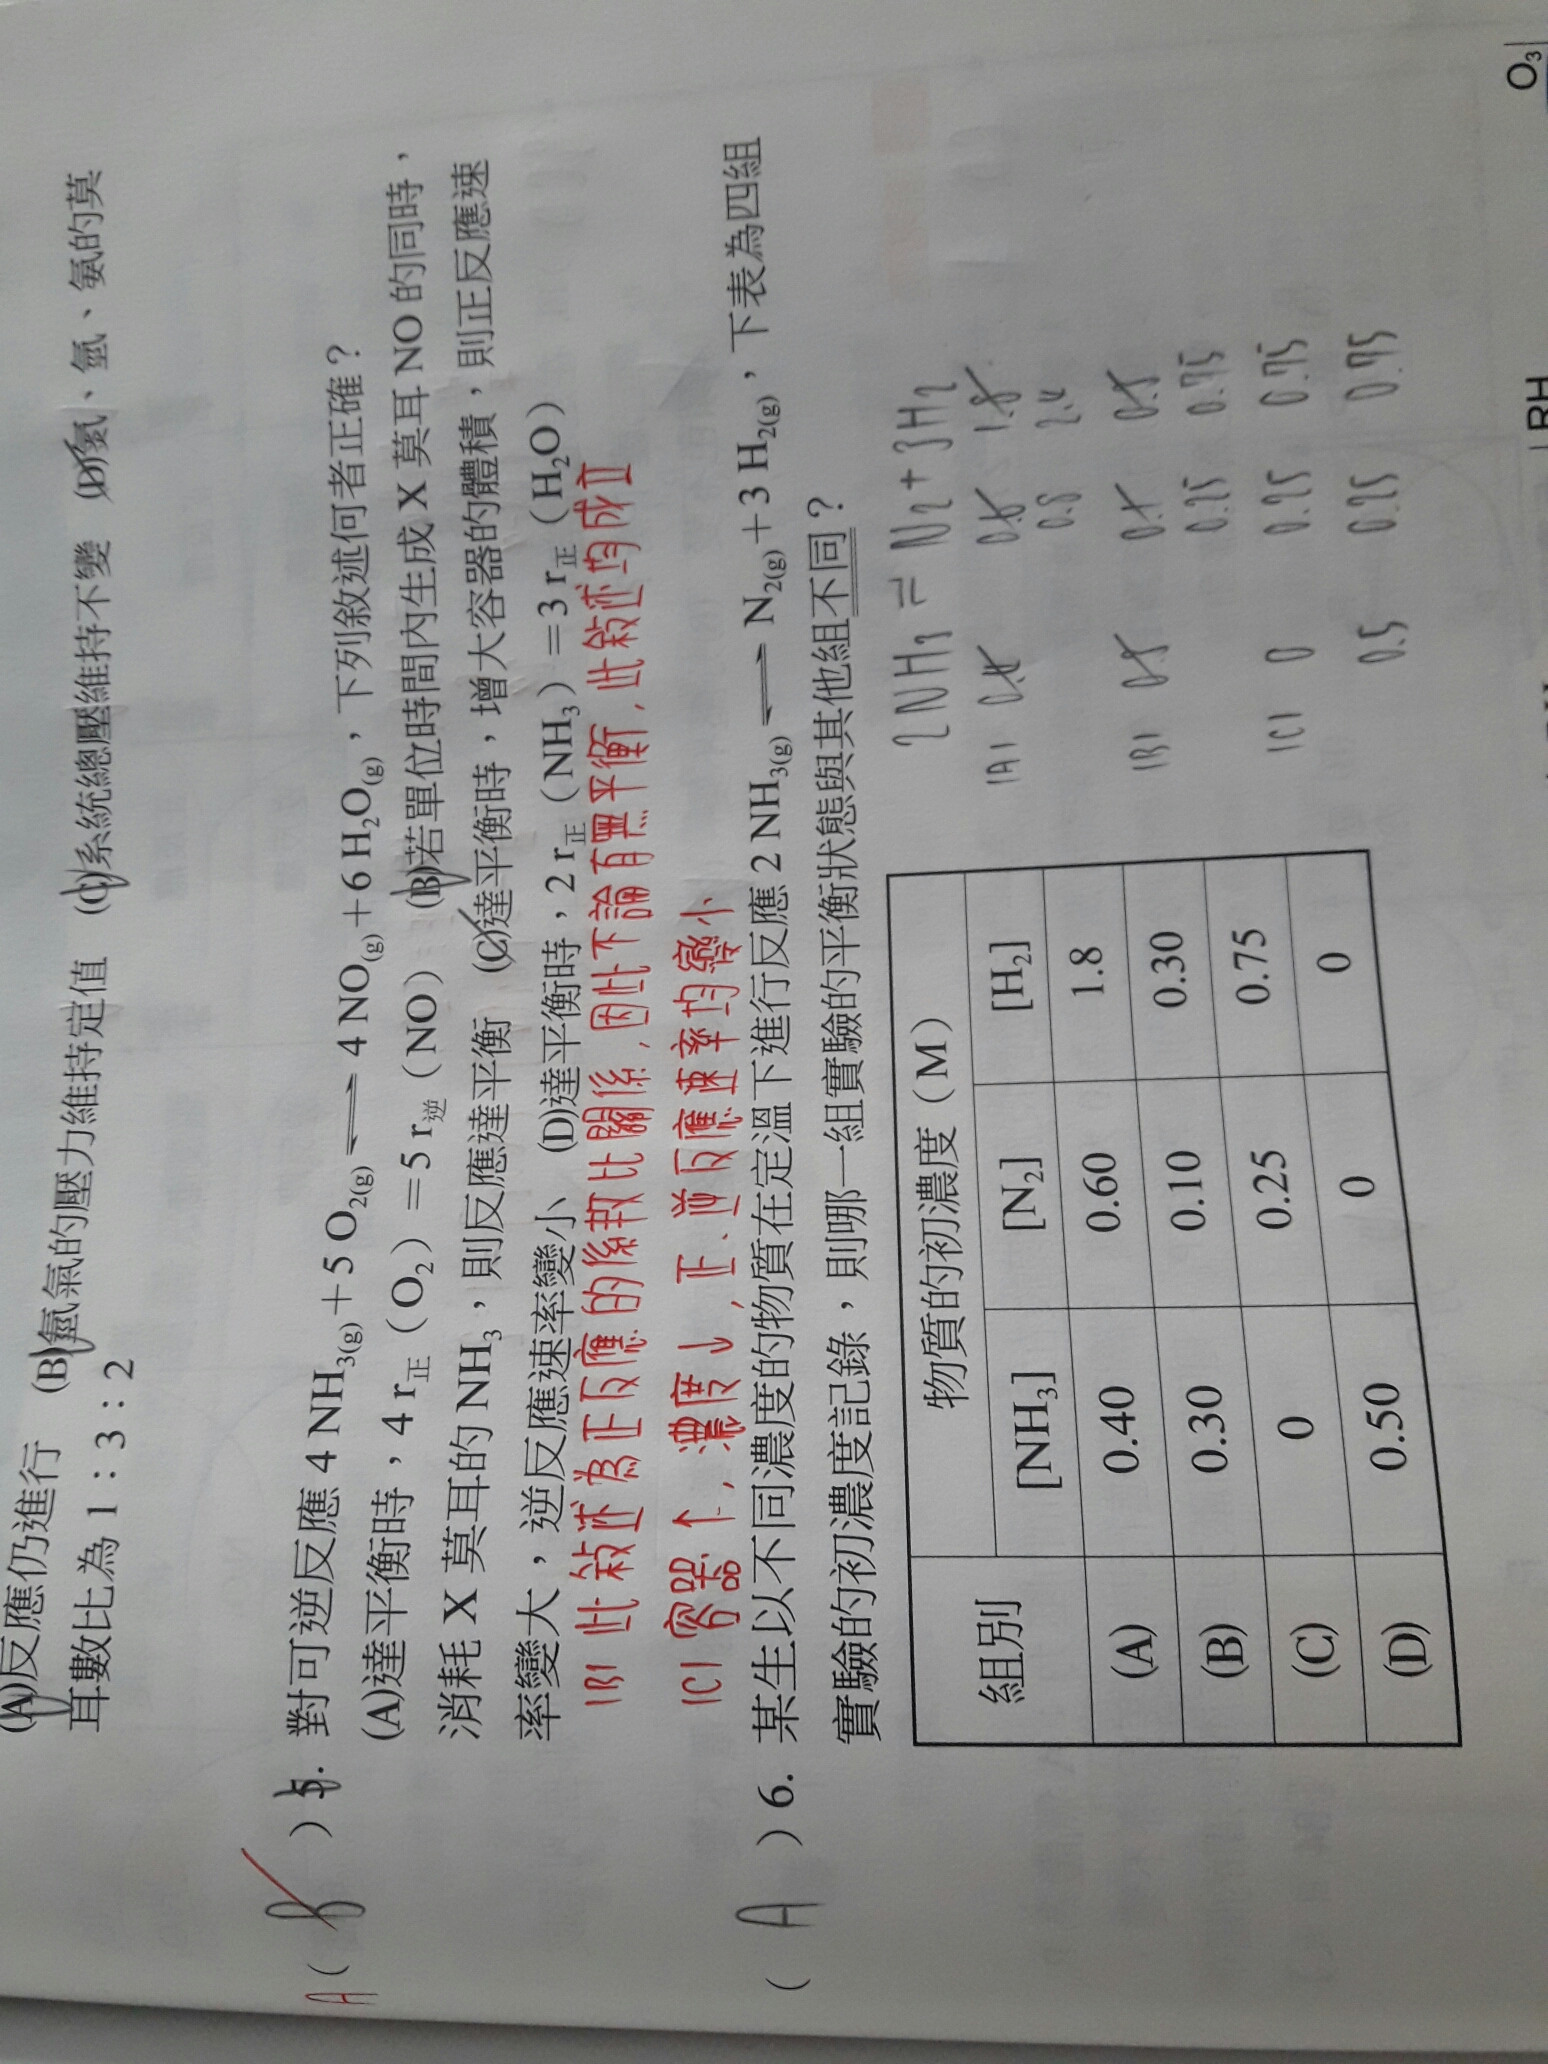 (A)反應仍進行 (B)氫氣的壓力維持定值 (C)系統總壓維持不變 (D)氮、氫、氨的莫
耳數比為 1：3：2
A ( B ) 5. 對可逆反應 4 NH₃(g)＋5 O₂(g) ⇌ 4 NO(g)＋6 H₂O(g)，下列敘述何者正確？
(A)達平衡時，4 r正（O₂）＝5 r逆（NO） (B)若單位時間內生成 X 莫耳 NO 的同時，
消耗 X 莫耳的 NH₃，則反應達平衡 (C)達平衡時，增大容器的體積，則正反應速
率變大，逆反應速率變小 (D)達平衡時，2 r正（NH₃）＝3 r正（H₂O）
(B) 此敘述為正反應的係數比關係，因此不論有無平衡，此敘述均成立
(C) 容器↑，濃度↓，正、逆反應速率均變小
( A ) 6. 某生以不同濃度的物質在定溫下進行反應 2 NH₃(g) ⇌ N₂(g)＋3 H₂(g)，下表為四組
實驗的初濃度記錄，則哪一組實驗的平衡狀態與其他組不同？
組別 物質的初濃度（M）
[NH₃] [N₂] [H₂]
(A) 0.40 0.60 1.8
(B) 0.30 0.10 0.30
(C) 0 0.25 0.75
(D) 0.50 0 0
2NH₃ ⇌ N₂ + 3H₂
(A) 0.4 0.6 1.8
0.8 2.4
(B)
0.25 0.75
(C) 0 0.25 0.75
0.5 0.25 0.75
O₃
RH